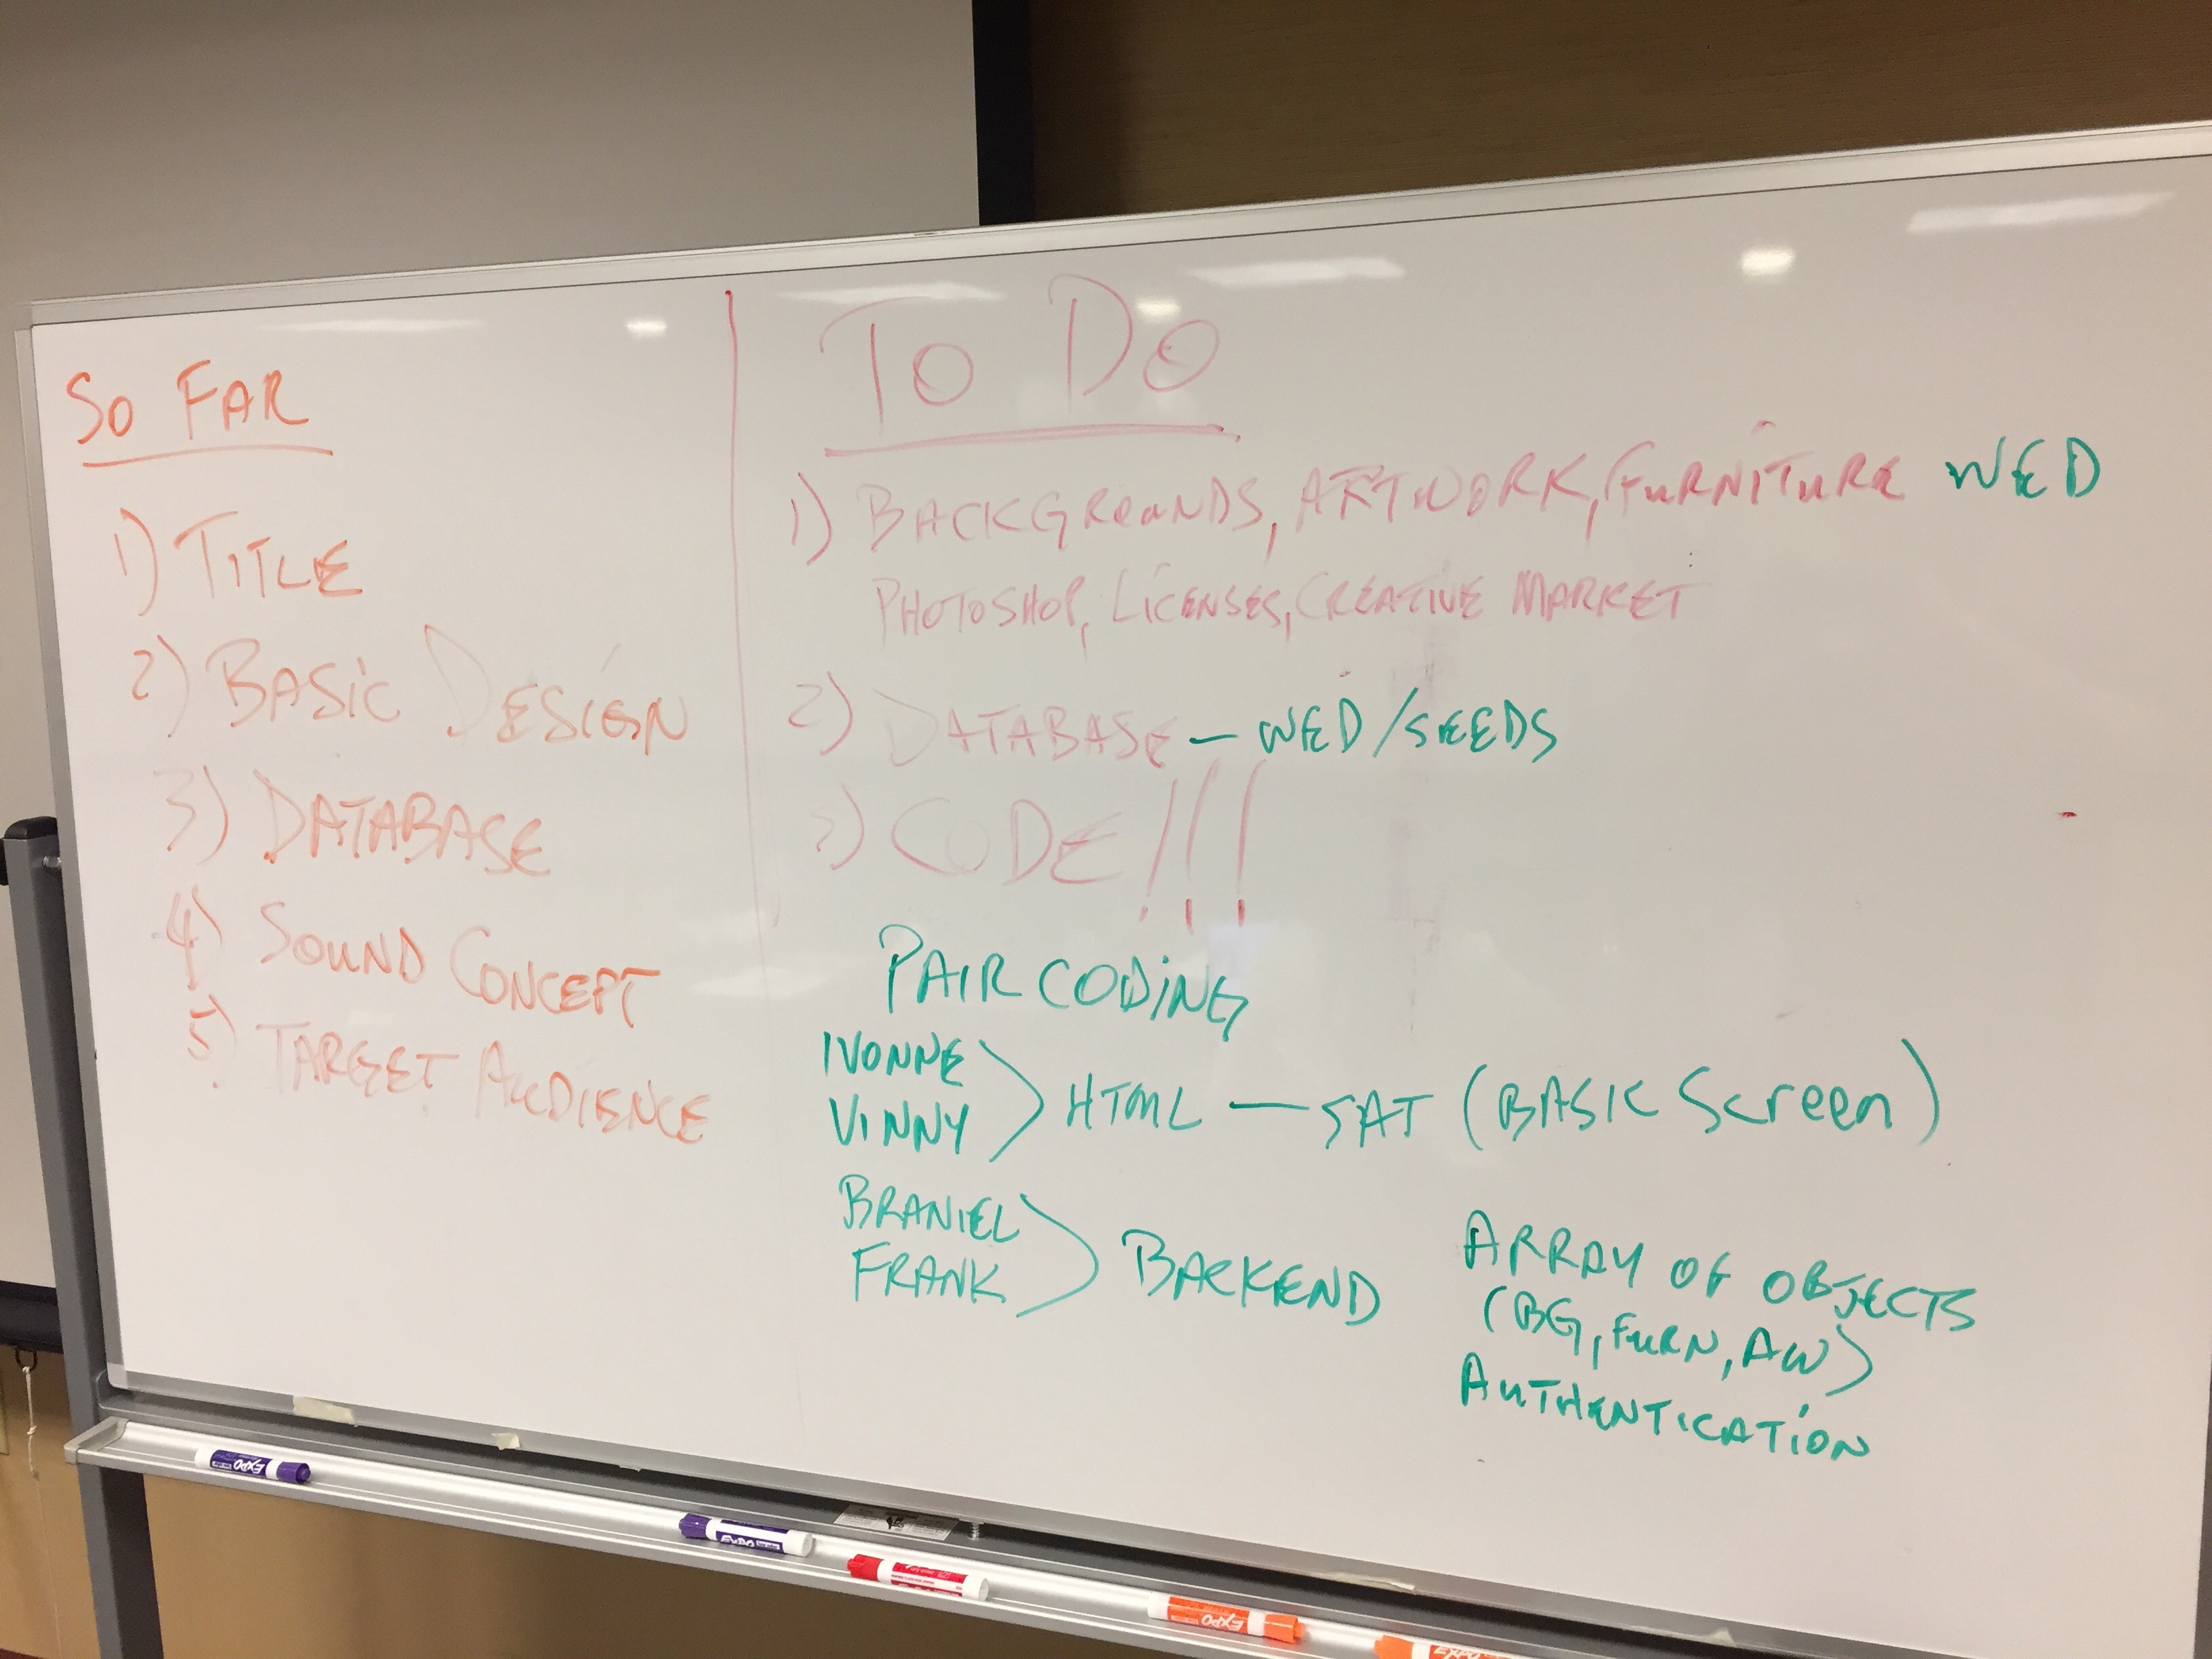 SO FAR
1) TITLE
2) BASIC DESIGN
3) DATABASE
4) SOUND CONCEPT
5) TARGET AUDIENCE
TO DO
1) BACKGROUNDS, ARTWORK, FURNITURE WED
PHOTOSHOP, LICENSES, CREATIVE MARKET
2) DATABASE – WED/SEEDS
3) CODE!!!
PAIR CODING
IVONNE
VINNY
HTML — SAT (BASIC Screen)
BRANIEL
FRANK
BACKEND
ARRAY OF OBJECTS
(BG, FURN, AW)
AUTHENTICATION
EXPO
EXPO
EXPO
EXPO